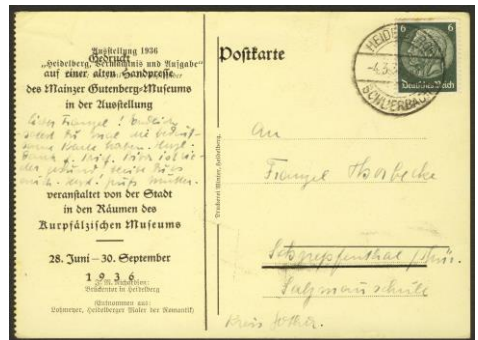 Ausstellung 1936
Gedruckt
„Heidelberg, Vermächtnis und Aufgabe“
auf einer alten Handpresse
des Mainzer Gutenberg-Museums
in der Ausstellung
Liebes Franzel! Endlich
sollst Du mal die
Karte haben. Herzl.
Dank f.
Mutter.
veranstaltet von der Stadt
in den Räumen des
Kurpfälzischen Museums
28. Juni – 30. September
1936
Brückentor in Heidelberg
(Entnommen aus:
Lohmeyer, Heidelberger Maler der Romantik)
Druckerei Winter, Heidelberg.
Postkarte
HEIDELBERG
-4.3.3
SCHLIERBACH
6 6
Deutsches Reich
An
Franzel Thorbecke
Schnepfenthal / Thür.
Salzmannschule
Kreis Gotha.